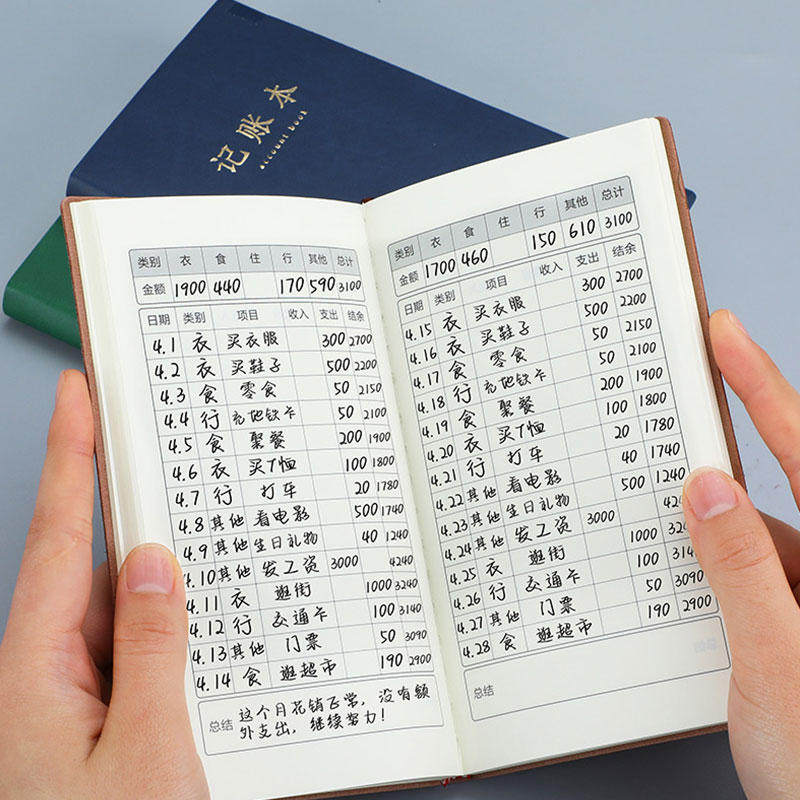 记账本
ACCOUNT BOOK
类别 衣 食 住 行 其他 总计
金额 1900 440 170 590 3100
日期 类别 项目 收入 支出 结余
4.1 衣 买衣服 300 2700
4.2 衣 买鞋子 500 2200
4.3 食 零食 50 2150
4.4 行 充地铁卡 50 2100
4.5 食 聚餐 200 1900
4.6 衣 买T恤 100 1800
4.7 行 打车 20 1780
4.8 其他 看电影 500 1740
4.9 其他 生日礼物 40 1240
4.10 其他 发工资 3000 4240
4.11 衣 逛街 1000 3240
4.12 行 交通卡 100 3140
4.13 其他 门票 50 3090
4.14 食 逛超市 190 2900
总结 这个月花销正常，没有额
外支出，继续努力！
类别 衣 食 住 行 其他 总计
金额 1700 460 150 610 3100
日期 类别 项目 收入 支出 结余
4.15 衣 买衣服 300 2700
4.16 衣 买鞋子 500 2200
4.17 食 零食 50 2150
4.18 行 充地铁卡 50 2100
4.19 食 聚餐 200 1900
4.20 衣 买T恤 100 1800
4.21 行 打车 20 1780
4.22 其他 看电影 40 1740
4.23 其他 生日礼物 500 1240
4.24 其他 发工资 3000
4.25 衣 逛街 1000
4.26 行 交通卡 100
4.27 其他 门票 50 3090
4.28 食 逛超市 190 2900
总结